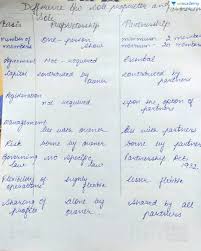 Difference b/w sole proprietor and Partnership
Basis Proprietorship Partnership
number of members one-person show minimum - 2 member
maximum - 20 members
agreement Not-required Essential
Capital contributed by owner contributed by partners
Registration not required upon the option of partners
management lies with owner lies with partners
Risk borne by owner borne by partners
Governing law no specific law Partnership Act, 1932
Flexibility of operations highly flexible lesser flexible
Sharing of profits alone by owner shared by all partners